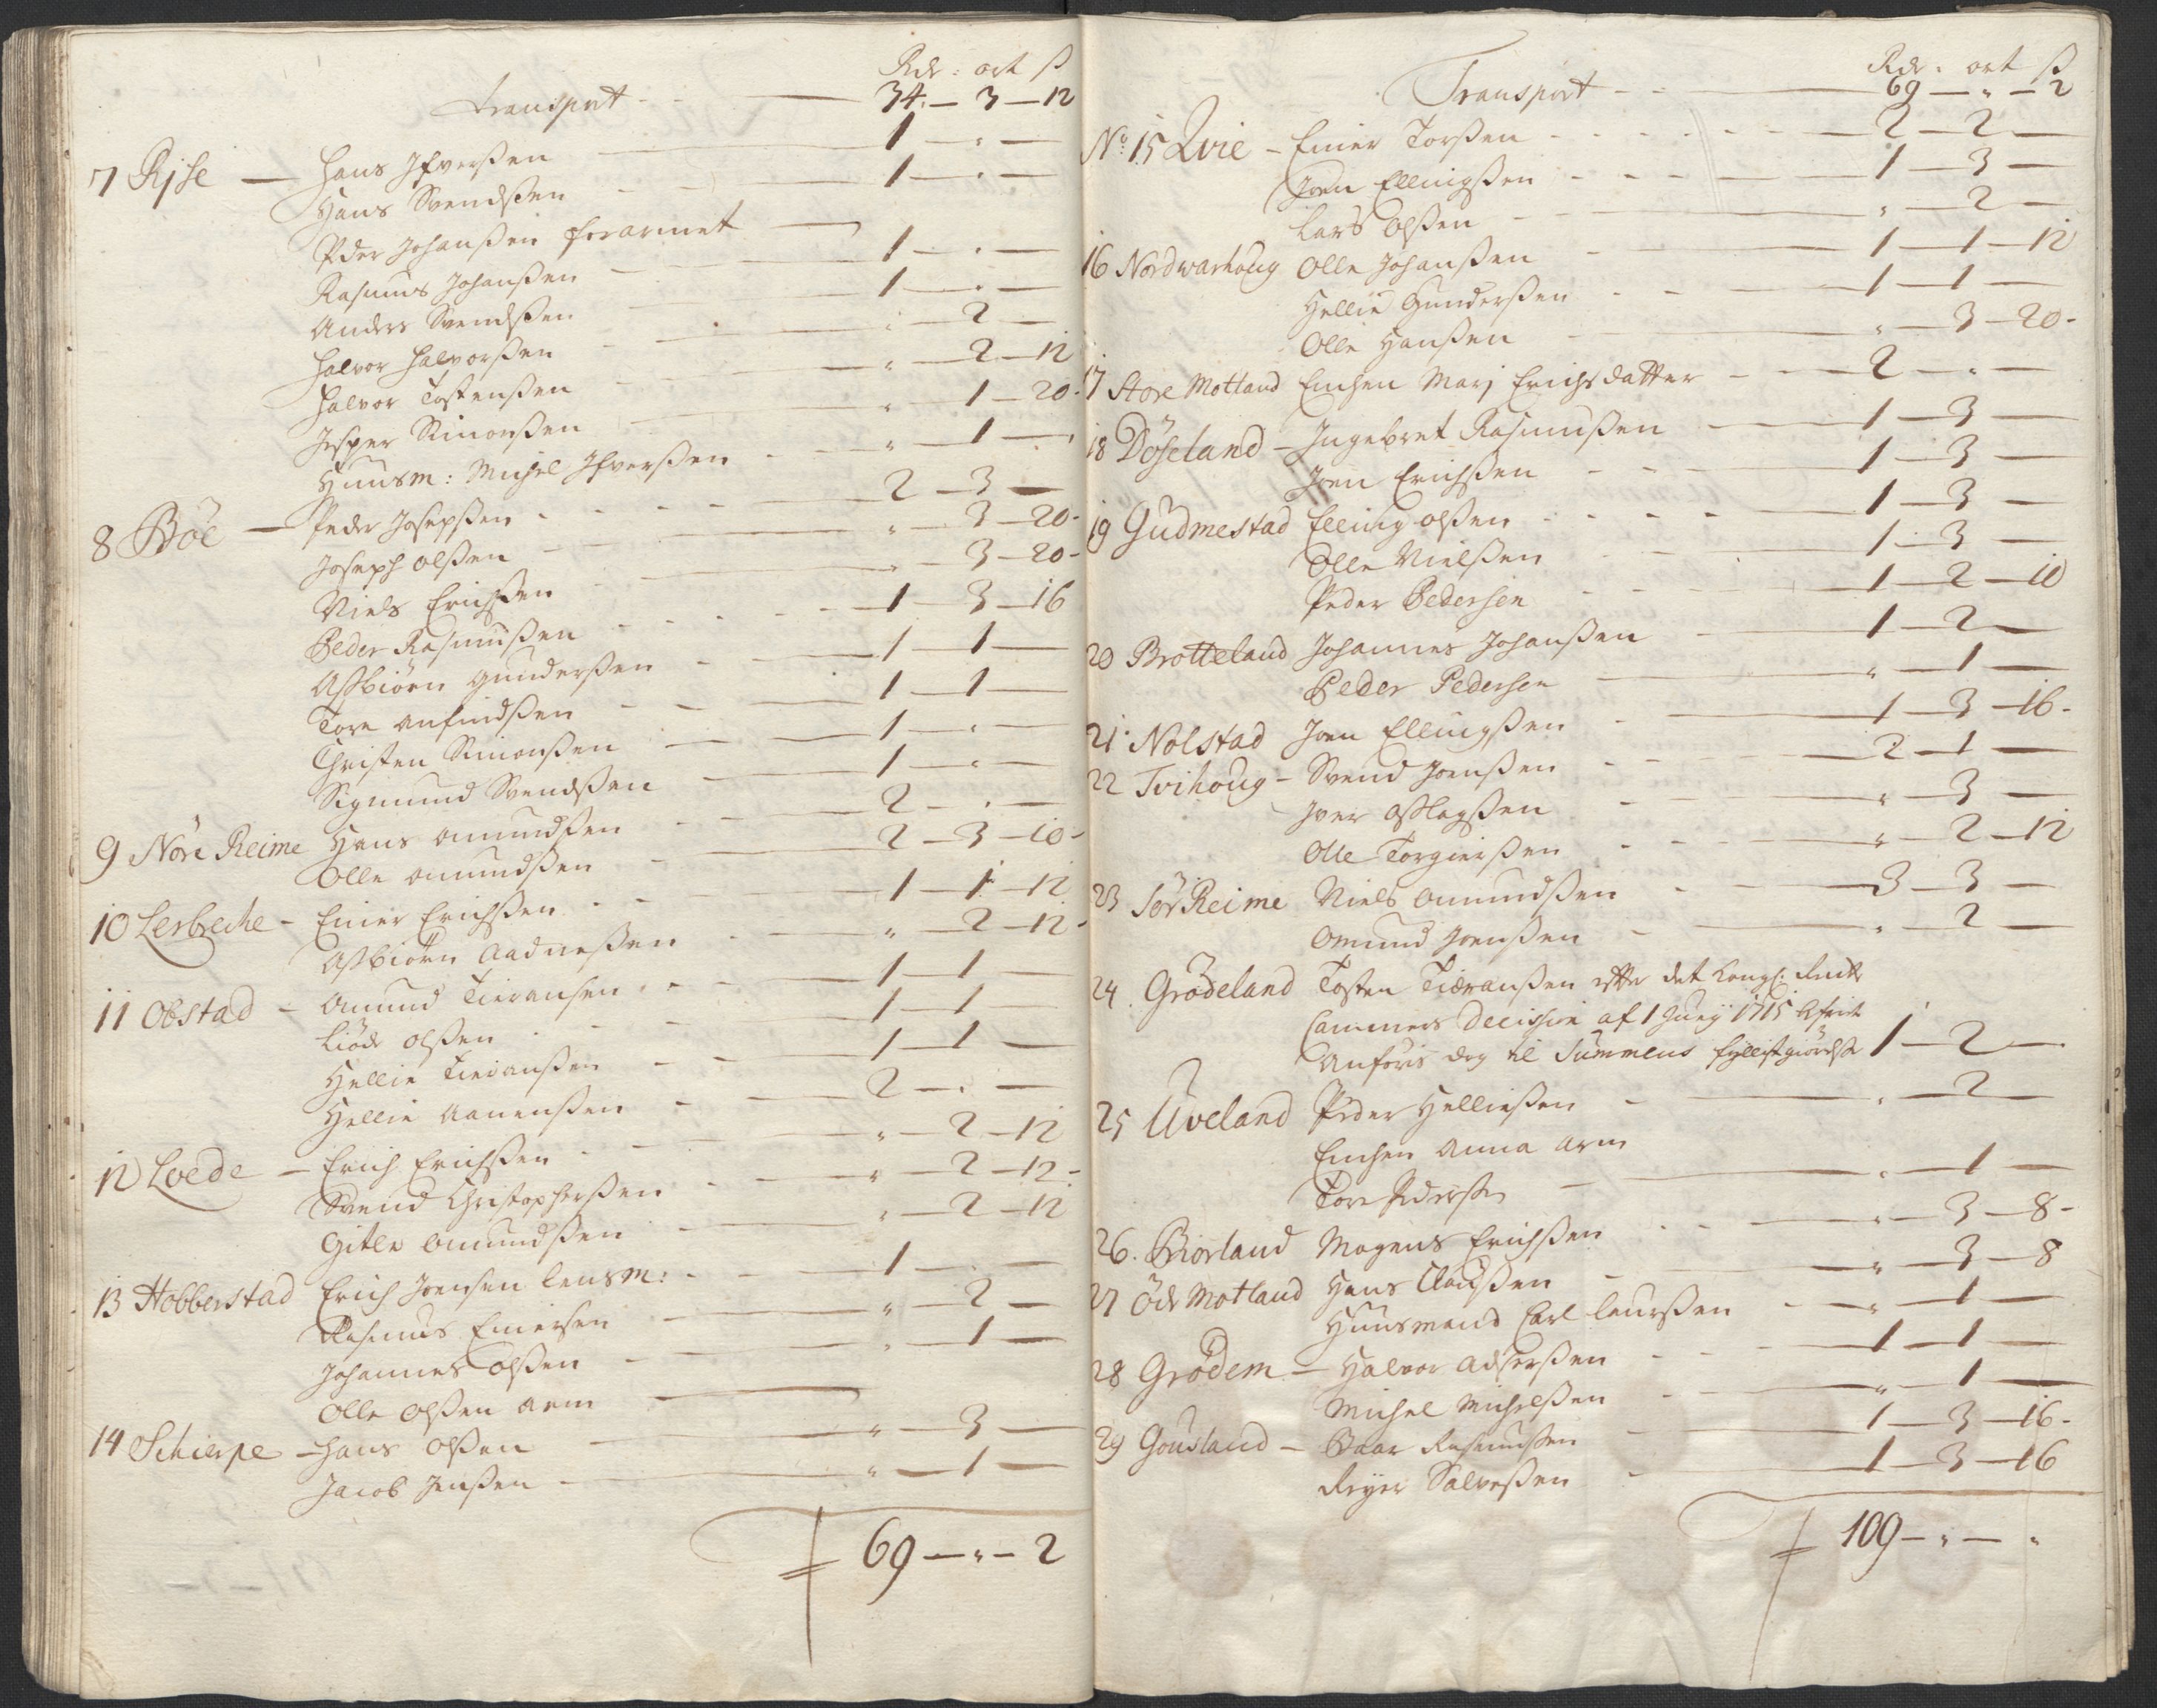 Rdr: ort ß
Transport - - 34 - 3 - 12
7 Rjse - Hans Ifversen - 1 - " -
Hans Svendsen - 1 - " -
Peder Johansen forarmet -
Rasmus Johansen - 1 - " -
Anders Svendsen - 1 - " -
Halvor Halvorsen - " - 2 -
Halvor Tostensen - " - 2 - 12
Jesper Simonsen - " - 1 - 20
Huusm: Michel Ifversen - " - 1 -
8 Böe - Peder Josepsen - 2 - 3 -
Joseph Olsen - " - 3 - 20
Niels Erichsen - " - 3 - 20
Peder Rasmusen - 1 - 3 - 16
Asbiörn Gundersen - 1 - 1 -
Tore Anfindsen - 1 - 1 -
Christen Simonsen - 1 - " -
Sigmund Svendsen - 1 - " -
9 Nöre Reime Hans Omundsen - 2 - " -
Olle Omundsen - 2 - 3 - 10
10 Lerbreche - Einer Erichsen - 1 - 1 - 12
Asbiörn Aadnesen - " - 2 - 12
11 Obstad - Omund Tieransen - 1 - 1 -
Liöde Olsen - 1 - 1 -
Hellie Tieransen - 1 - 1 -
Hellie Aanensen - 2 - " -
12 Loede - Erich Erichsen - " - 2 - 12
Svend Christophersen - " - 2 - 12
Gitle Omundsen - " - 2 - 12
13 Hobberstad Erich Joensen lensm: - 1 - " -
Rasmus Einersen - " - 2 -
Johannes Olsen - " - 1 -
Olle Olsen arm -
14 Schierpe - Hans Olsen - " - 3 -
Jacob Jensen - " - 1 -
69 - " - 2
Rdr: ort ß
Transport - - 69 - " - 2
No 15 Qvie - Einer Torsen - 2 - 2 -
Joen Ellingsen - 1 - 3 -
Lars Olsen - " - 2 -
16 Nordwarhoug Olle Johansen - 1 - 1 - 12
Hellie Gundersen - 1 - 1 -
Olle Hansen - " - 3 - 20
17 Store Motland Enchen Marj Erichsdatter - 2 - " -
18 Döseland - Ingebret Rasmusen - 1 - 3 -
Joen Erichsen - 1 - 3 -
19 Gudmestad Elling Olsen - 1 - 3 -
Olle Nielsen - 1 - 3 -
Peder Pedersen - 1 - 2 - 10
20 Brotteland Johannes Johansen - 1 - 2 -
Peder Pedersen - " - 1 -
21 Nolstad Joen Ellingsen - 1 - 3 - 16
22 Tvihoug - Svend Joensen - 2 - 1 -
Iver Aslagsen - " - 3 -
Olle Torgiersen - " - 2 - 12
23 Sör Reime Niels Omundsen - 3 - 3 -
Omund Joensen - " - 2 -
24 Grödeland Tosten Tieransen efter det Kongl: Rente
Cammers Decision af 1 Junij 1715
Anföris dog til Summens fyllistgiörelse 1 - 2 -
25 Uveland Peder Helliesen - " - 2 -
Enchen Anna arm
Tore Pedersen - " - 1 -
26. Biorland Mogens Erichsen - " - 3 - 8
27 Öde Motland Hans Clausen - " - 3 - 8
Huusmand Carl Laursen - " - 1 -
28 Grödem - Halvor Adsersen - 1 - 1 -
Michel Michelsen - " - 1 -
29 Gousland - Baar Rasmusen - 1 - 3 - 16
Reyer Salvesen - 1 - 3 - 16
109 - " - "